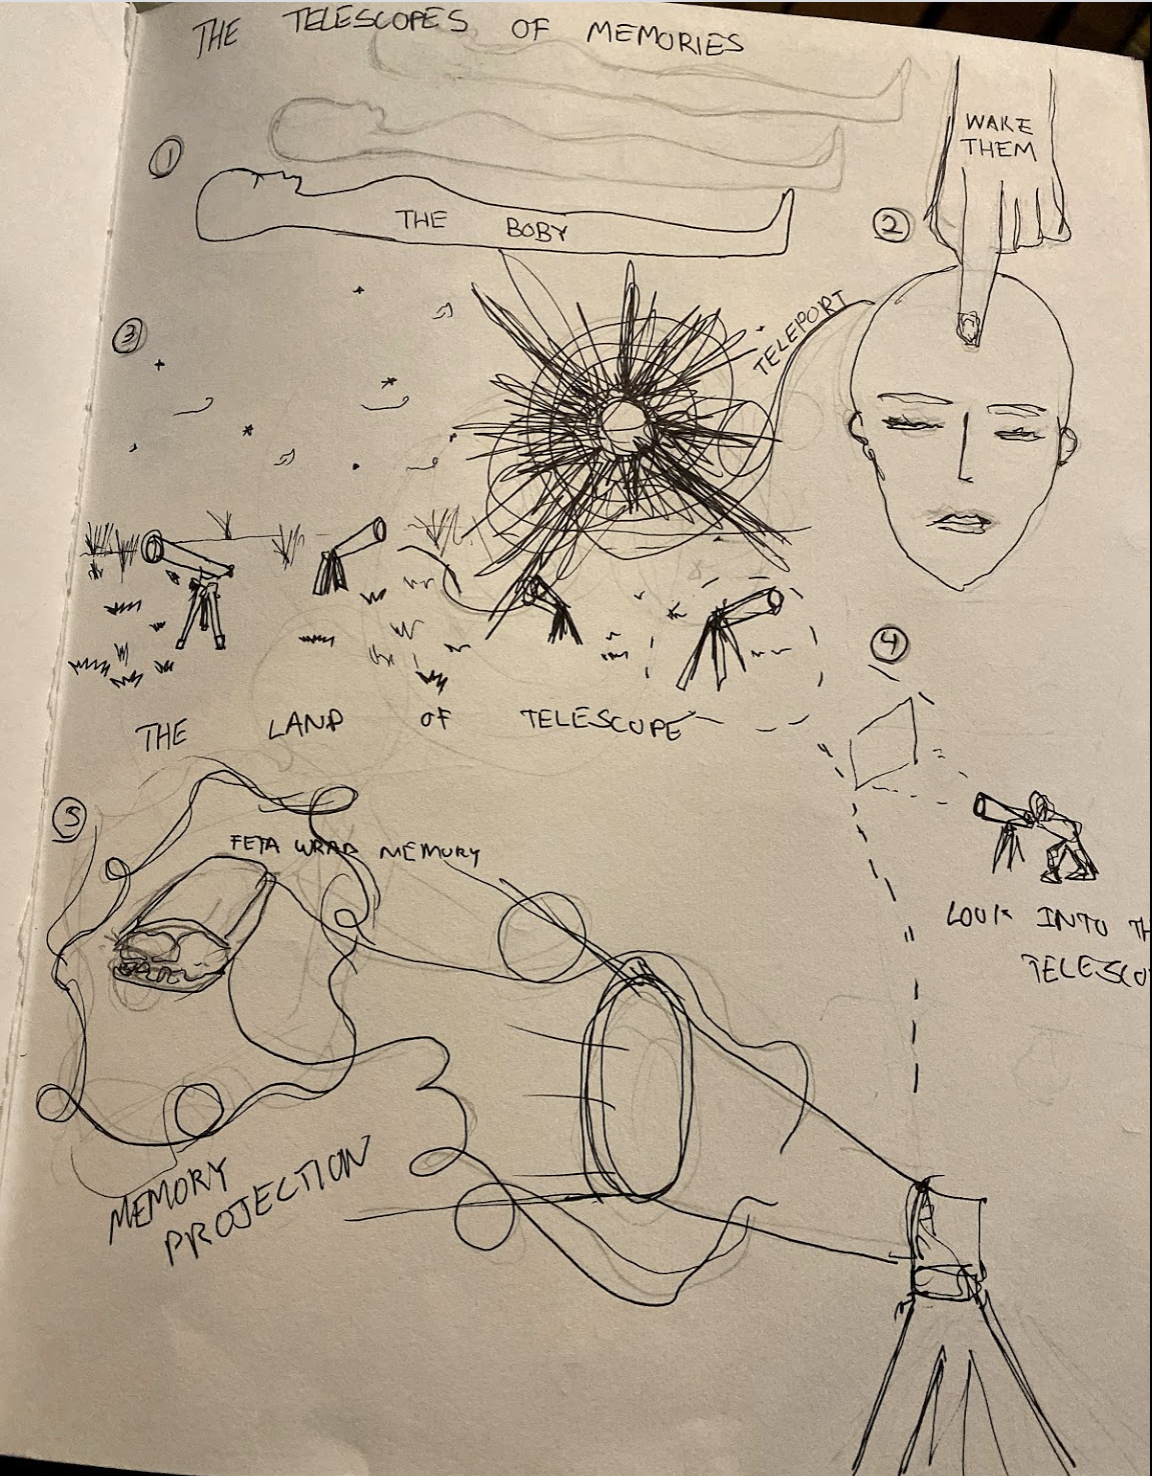 THE TELESCOPES OF MEMORIES
1
THE BOBY
WAKE
THEM
2
3
TELEPORT
THE LAND OF TELESCOPE
4
LOOK INTO TH
TELESCO
5
FETA WRAP MEMORY
MEMORY
PROJECTION